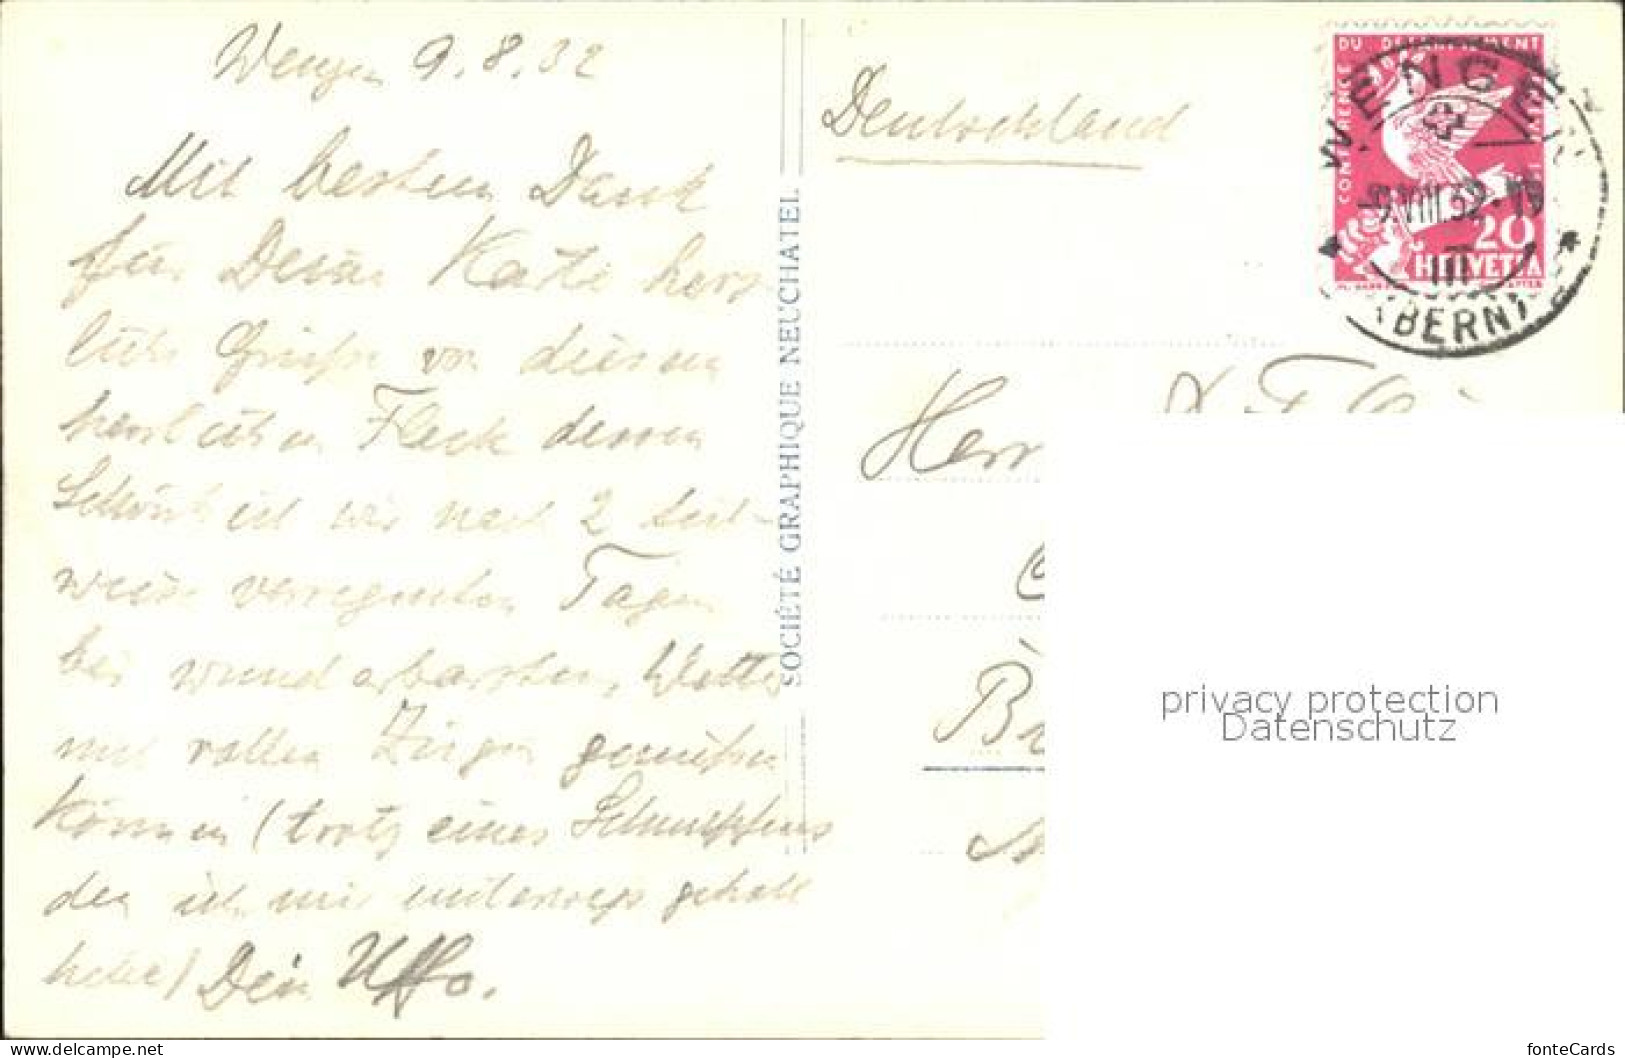 Wengen 9.8.32
Mit besten Dank
für Deine Karte herz-
liche Grüße von diesem
herrlichen Fleck dessen
Schönheit wir nach 2 teil-
weise verregneten Tagen
bei wunderbarstem Wetter
mit vollen Zügen genießen
können (trotz eines Schnupfens
den ich mir unterwegs geholt
habe) Dein Uffo.
SOCIÉTÉ GRAPHIQUE NEUCHATEL
Deutschland
CONFERENCE DU DESARMEMENT
20
HELVETIA
WENGEN
9.VIII.32-19
III
(BERN)
Herr
privacy protection
Datenschutz
fonteCards